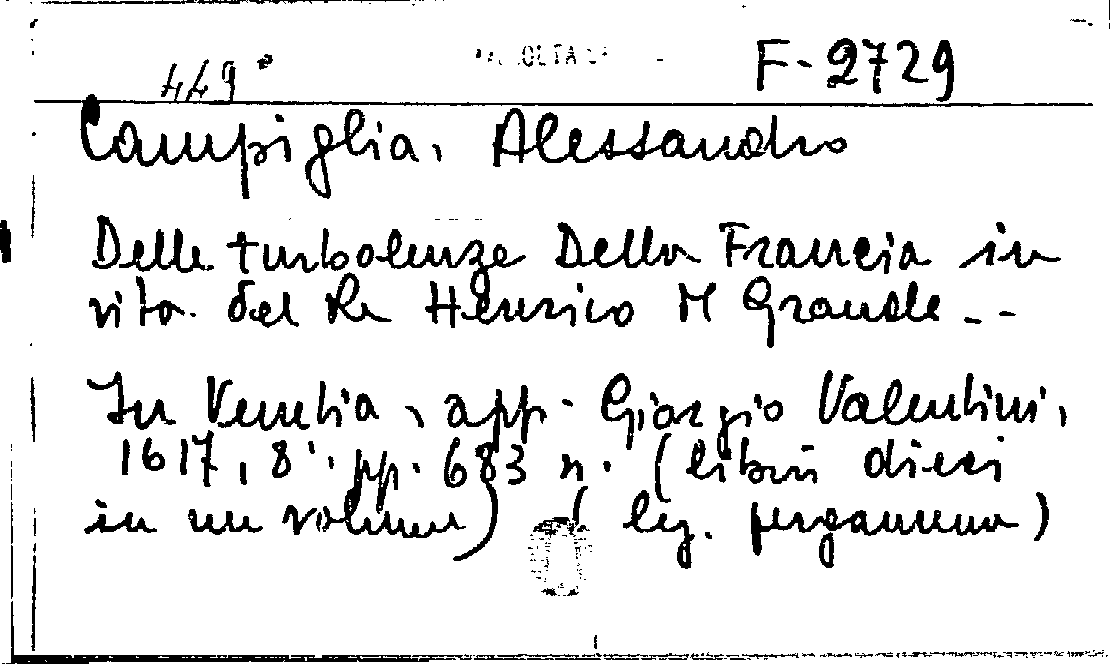 449° F-2729
Campiglia, Alessandro
Delle turbolenze Della Francia in
vita del Re Henrico il Grande - -
In Venetia, app. Giorgio Valentini,
1617, 8°. pp. 683 n. (libri dieci
in un volume) (leg. pergamena)